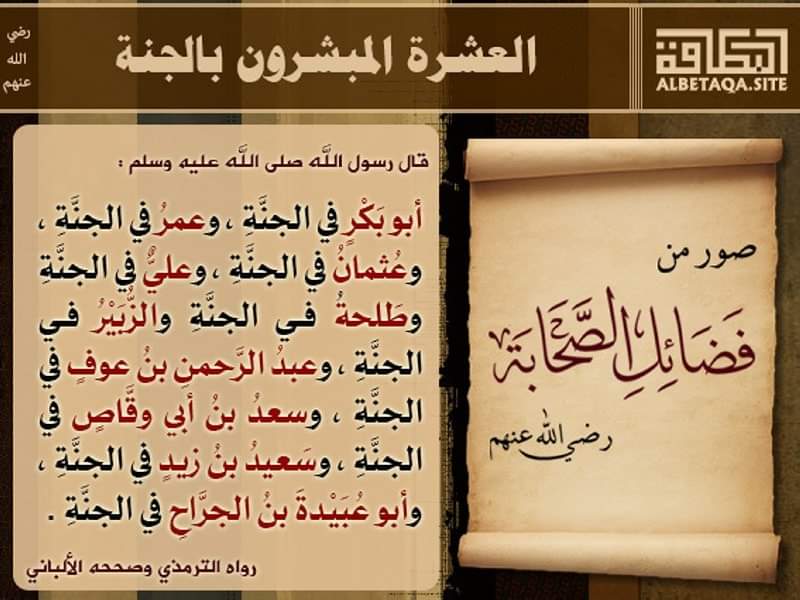 العشرة المبشرون بالجنة
رضي
الله
عنهم
البطاقة
ALBETAQA.SITE
صور من
فَضَائِلِ الصَّحَابَة
رضي الله عنهم
قال رسول اللَّه صلى اللَّه عليه وسلم :
أبو بَكْرٍ في الجنَّةِ ، وعمرُ في الجنَّةِ ،
وعُثمانُ في الجنَّةِ ، وعليٌّ في الجنَّةِ
وطَلحةُ في الجنَّةِ والزُّبَيْرُ في
الجنَّةِ ، وعبدُ الرَّحمنِ بنُ عوفٍ في
الجنَّةِ ، وسعدُ بنُ أبي وقَّاصٍ في
الجنَّةِ ، وسَعيدُ بنُ زيدٍ في الجنَّةِ ،
وأبو عُبَيْدةَ بنُ الجرَّاحِ في الجنَّةِ .
رواه الترمذي وصححه الألباني